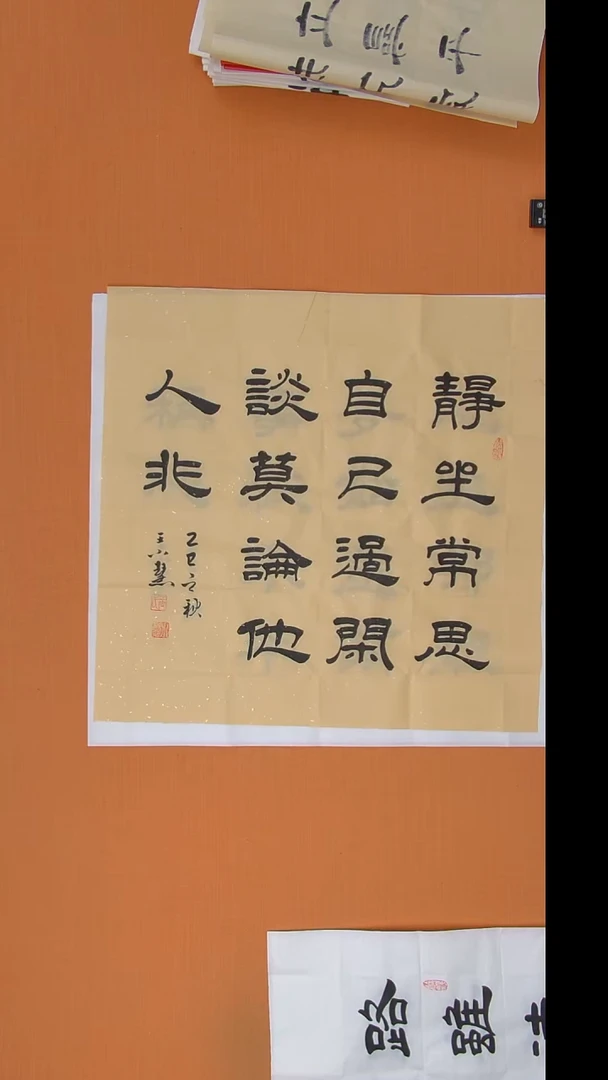 靜坐常思
自己過閑
談莫論他
人非
乙巳之秋
路
雖